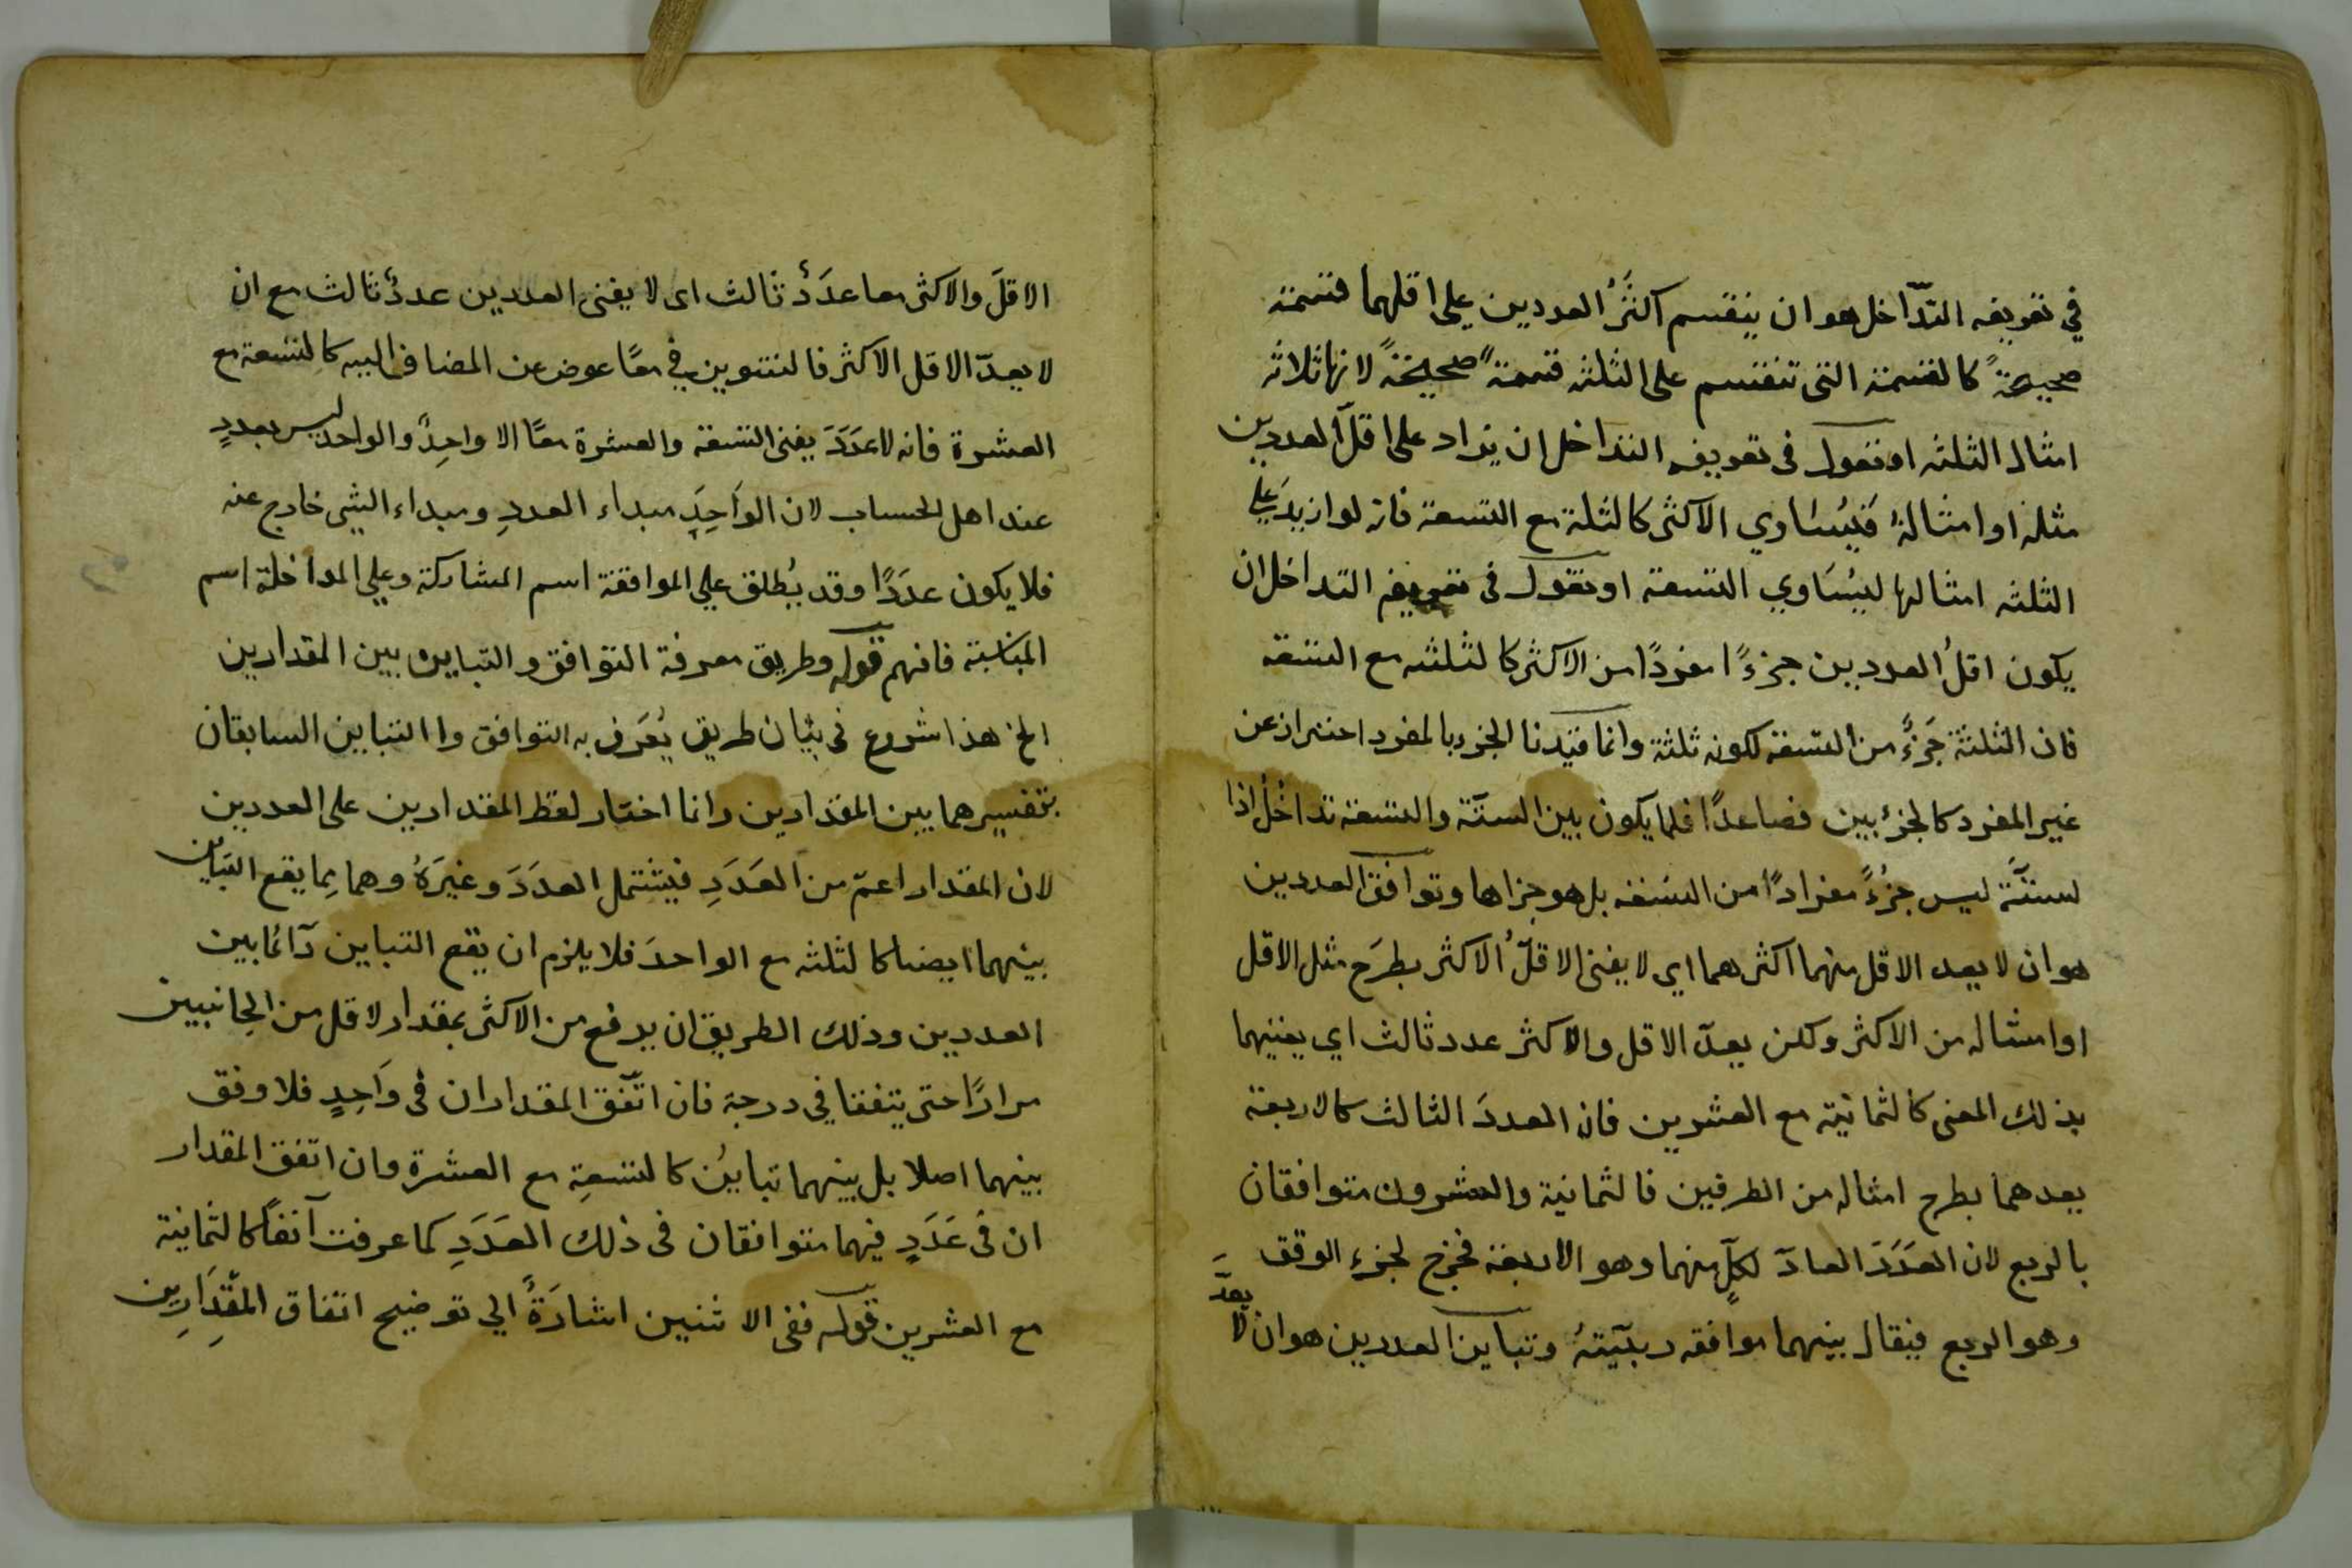 في تعريفه التدّاخل هو ان ينقسم اكثَرُ العددين على اقلهما قسمة
صحيحةً كالقسمة التى تنقسم على الثلثه قسمةً صحيحةً لانها ثلاثه
امثال الثلثه او نقول فى تعريف التداخل ان يزاد على اقلّ العددين
مثله او امثالهُ فيُسَاوي الاكثر كالثلثة مع التسعة فانه لو ازيد على
الثلثه امثالها ليُسَاوي التسعة او نقول فى تعريف التداخل ان
يكون اقلُ العددين جزءً مفردًا من الاكثر كالثلثه مع التسعة
فان الثلثة جَزءٌ من التسعة لكونه ثلثة وانما قيّدنا الجزء بالمفرد احتراز عن
غير المفرد كالجزئين فصاعدًا فلا يكون بين الستّة والتسعة تداخُلُ اذا
لستّة ليس جزُءً مفرادًا من التسعة بل هو جزاها وتوافق العددين
هو ان لا يعد الاقل منهما اكثرهما اي لا يفنى الاقلُّ الاكثر بطرَح مثل الاقل
او امثاله من الاكثر ولكن يعدّ الاقل والاكثر عدد ثالث اي يفنيهما
بذلك المعنى كالثمانية مع العشرين فان العددَ الثالث كالاربعة
يعدهما بطرح امثاله من الطرفين فالثمانية والعشرون متوافقان
بالربع لان العدَدَ العادّ لكلٍّ منهما وهو الاربعة مخرج لجزء الوفق
وهو الربع فيقال بينهما موافقه ربعيّتهُ وتباين العددين هو ان لا يعدَّ
الاقلَ والاكثر معا عدَدٌ ثالث اى لا يفنى العددين عددٌ ثالث مع ان
لا يعدّ الاقل الاكثر فالتنوين في معًا عوض عن المضاف اليه كالتسعة مع
العشرة فانه لا عدَدَ يفنى التسعة والعشرة معًا الا واحِدٌ والواحد ليس بعددٍ
عند اهل الحساب لان الوَاحِدَ مبداء العددِ ومبداء الشي خارج عنه
فلا يكون عدَدًا وقد يُطلق على الموافقة اسم المشاركة وعلى المداخلة اسم
المناسبة فافهم قوله وطريق معرفة التوافق والتباين بين المقدارين
الخ هذا شروع فى بيَان طريق يُعرَف به التوافق وا التباين السابقان
بتفسيرهما بين المقدارين وانما اختار لفظ المقدارين على العددين
لان المقدار اعمّ من العَدَدِ فيشتمل العدَدَ وغيَرَهُ وهما بما يقع التباين
بينهما ايضا كالثلثه مع الواحدَ فلا يلزم ان يقع التباين دآئما بين
العددين وذلك الطريق ان يدفع من الاكثر بمقدار لاقل من الجانبين
مرارًا حتى يتفقا في درجة فان اتّفق المقداران فى وَاحِدٍ فلا وفق
بينهما اصلا بل بينهما تباينُ كالتسعةِ مع العشرة وان اتفق المقدار
ان فى عَدَدٍ فيهما متوافقان فى ذلك العَدَدِ كما عرفت آنفًا كالثمانية
مع العشرين قوله ففى الاثنين اشارَةً الي توضيح اتفاق المقدَارِين